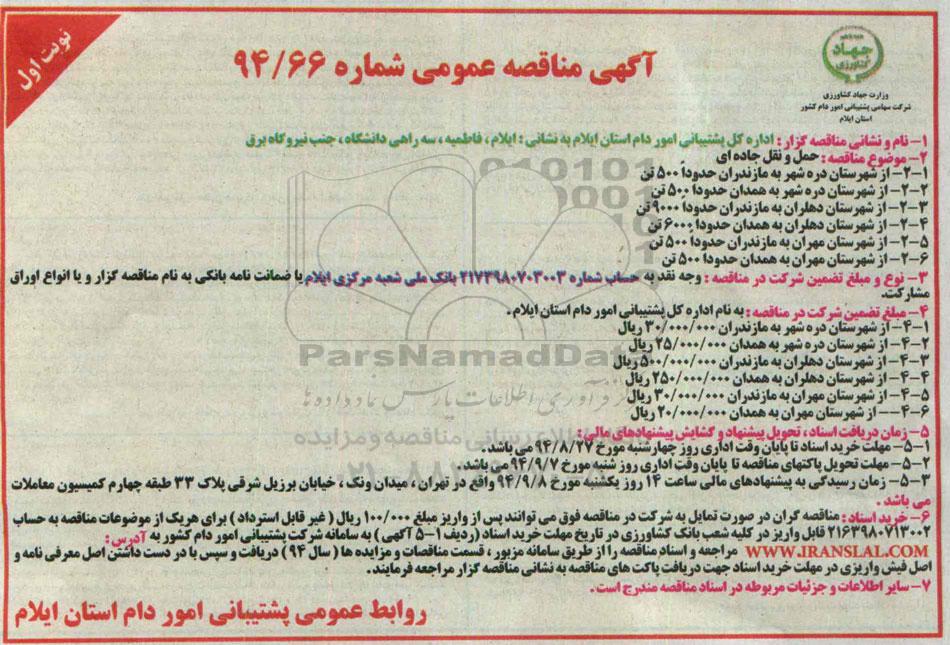 نوبت اول
آگهی مناقصه عمومی شماره ۹۴/۶۶
جهاد
کشاورزی
وزارت جهاد کشاورزی
شرکت سهامی پشتیبانی امور دام کشور
استان ایلام
۱- نام و نشانی مناقصه گزار : اداره کل پشتیبانی امور دام استان ایلام به نشانی : ایلام ، فاطمیه ، سه راهی دانشگاه ، جنب نیروگاه برق
۲- موضوع مناقصه : حمل و نقل جاده ای
۲-۱- از شهرستان دره شهر به مازندران حدوداً ۵۰۰ تن
۲-۲- از شهرستان دره شهر به همدان حدوداً ۵۰۰ تن
۲-۳- از شهرستان دهلران به مازندران حدوداً ۹۰۰۰ تن
۲-۴- از شهرستان دهلران به همدان حدوداً ۶۰۰۰ تن
۲-۵- از شهرستان مهران به مازندران حدوداً ۵۰۰ تن
۲-۶- از شهرستان مهران به همدان حدوداً ۵۰۰ تن
۳- نوع و مبلغ تضمین شرکت در مناقصه : وجه نقد به حساب شماره ۲۱۷۳۹۸۰۷۰۳۰۰۳ بانک ملی شعبه مرکزی ایلام یا ضمانت نامه بانکی به نام مناقصه گزار و یا انواع اوراق
مشارکت.
۴- مبلغ تضمین شرکت در مناقصه : به نام اداره کل پشتیبانی امور دام استان ایلام .
۴-۱- از شهرستان دره شهر به مازندران ۳۰/۰۰۰/۰۰۰ ریال
۴-۲- از شهرستان دره شهر به همدان ۲۵/۰۰۰/۰۰۰ ریال
۴-۳- از شهرستان دهلران به مازندران ۵۰۰/۰۰۰/۰۰۰ ریال
۴-۴- از شهرستان دهلران به همدان ۲۵۰/۰۰۰/۰۰۰ ریال
۴-۵- از شهرستان مهران به مازندران ۳۰/۰۰۰/۰۰۰ ریال
۴-۶-- از شهرستان مهران به همدان ۲۰/۰۰۰/۰۰۰ ریال
۵- زمان دریافت اسناد ، تحویل پیشنهاد و گشایش پیشنهادهای مالی:
۵-۱- مهلت خرید اسناد تا پایان وقت اداری روز چهارشنبه مورخ ۹۴/۸/۲۷ می باشد .
۵-۲- مهلت تحویل پاکتهای مناقصه تا پایان وقت اداری روز شنبه مورخ ۹۴/۹/۷ می باشد .
۵-۳- زمان رسیدگی به پیشنهادهای مالی ساعت ۱۴ روز یکشنبه مورخ ۹۴/۹/۸ واقع در تهران ، میدان ونک ، خیابان برزیل شرقی پلاک ۳۳ طبقه چهارم کمیسیون معاملات
می باشد .
۶- خرید اسناد : مناقصه گران در صورت تمایل به شرکت در مناقصه فوق می توانند پس از واریز مبلغ ۱۰۰/۰۰۰ ریال ( غیر قابل استرداد ) برای هریک از موضوعات مناقصه به حساب
۲۱۶۳۹۸۰۷۱۳۰۰۲ قابل واریز در کلیه شعب بانک کشاورزی در تاریخ مهلت خرید اسناد (ردیف ۱-۵ آگهی) به سامانه شرکت پشتیبانی امور دام کشور به آدرس :
WWW.IRANSLAL.COM مراجعه و اسناد مناقصه را از طریق سامانه مزبور ، قسمت مناقصات و مزایده ها ( سال ۹۴ ) دریافت و سپس با در دست داشتن اصل معرفی نامه و
اصل فیش واریزی در مهلت خرید اسناد جهت دریافت پاکت های مناقصه به نشانی مناقصه گزار مراجعه فرمایند.
۷- سایر اطلاعات و جزئیات مربوطه در اسناد مناقصه مندرج است .
روابط عمومی پشتیبانی امور دام استان ایلام
ParsNamadData